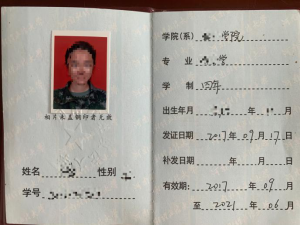 相片未盖钢印者无效
姓名 性别
学号
学院(系) 学院
专业 学
学制 四年
出生年月 年 月
发证日期 2017年09月17日
补发日期 年 月 日
有效期: 2017年09月
至 2021年06月